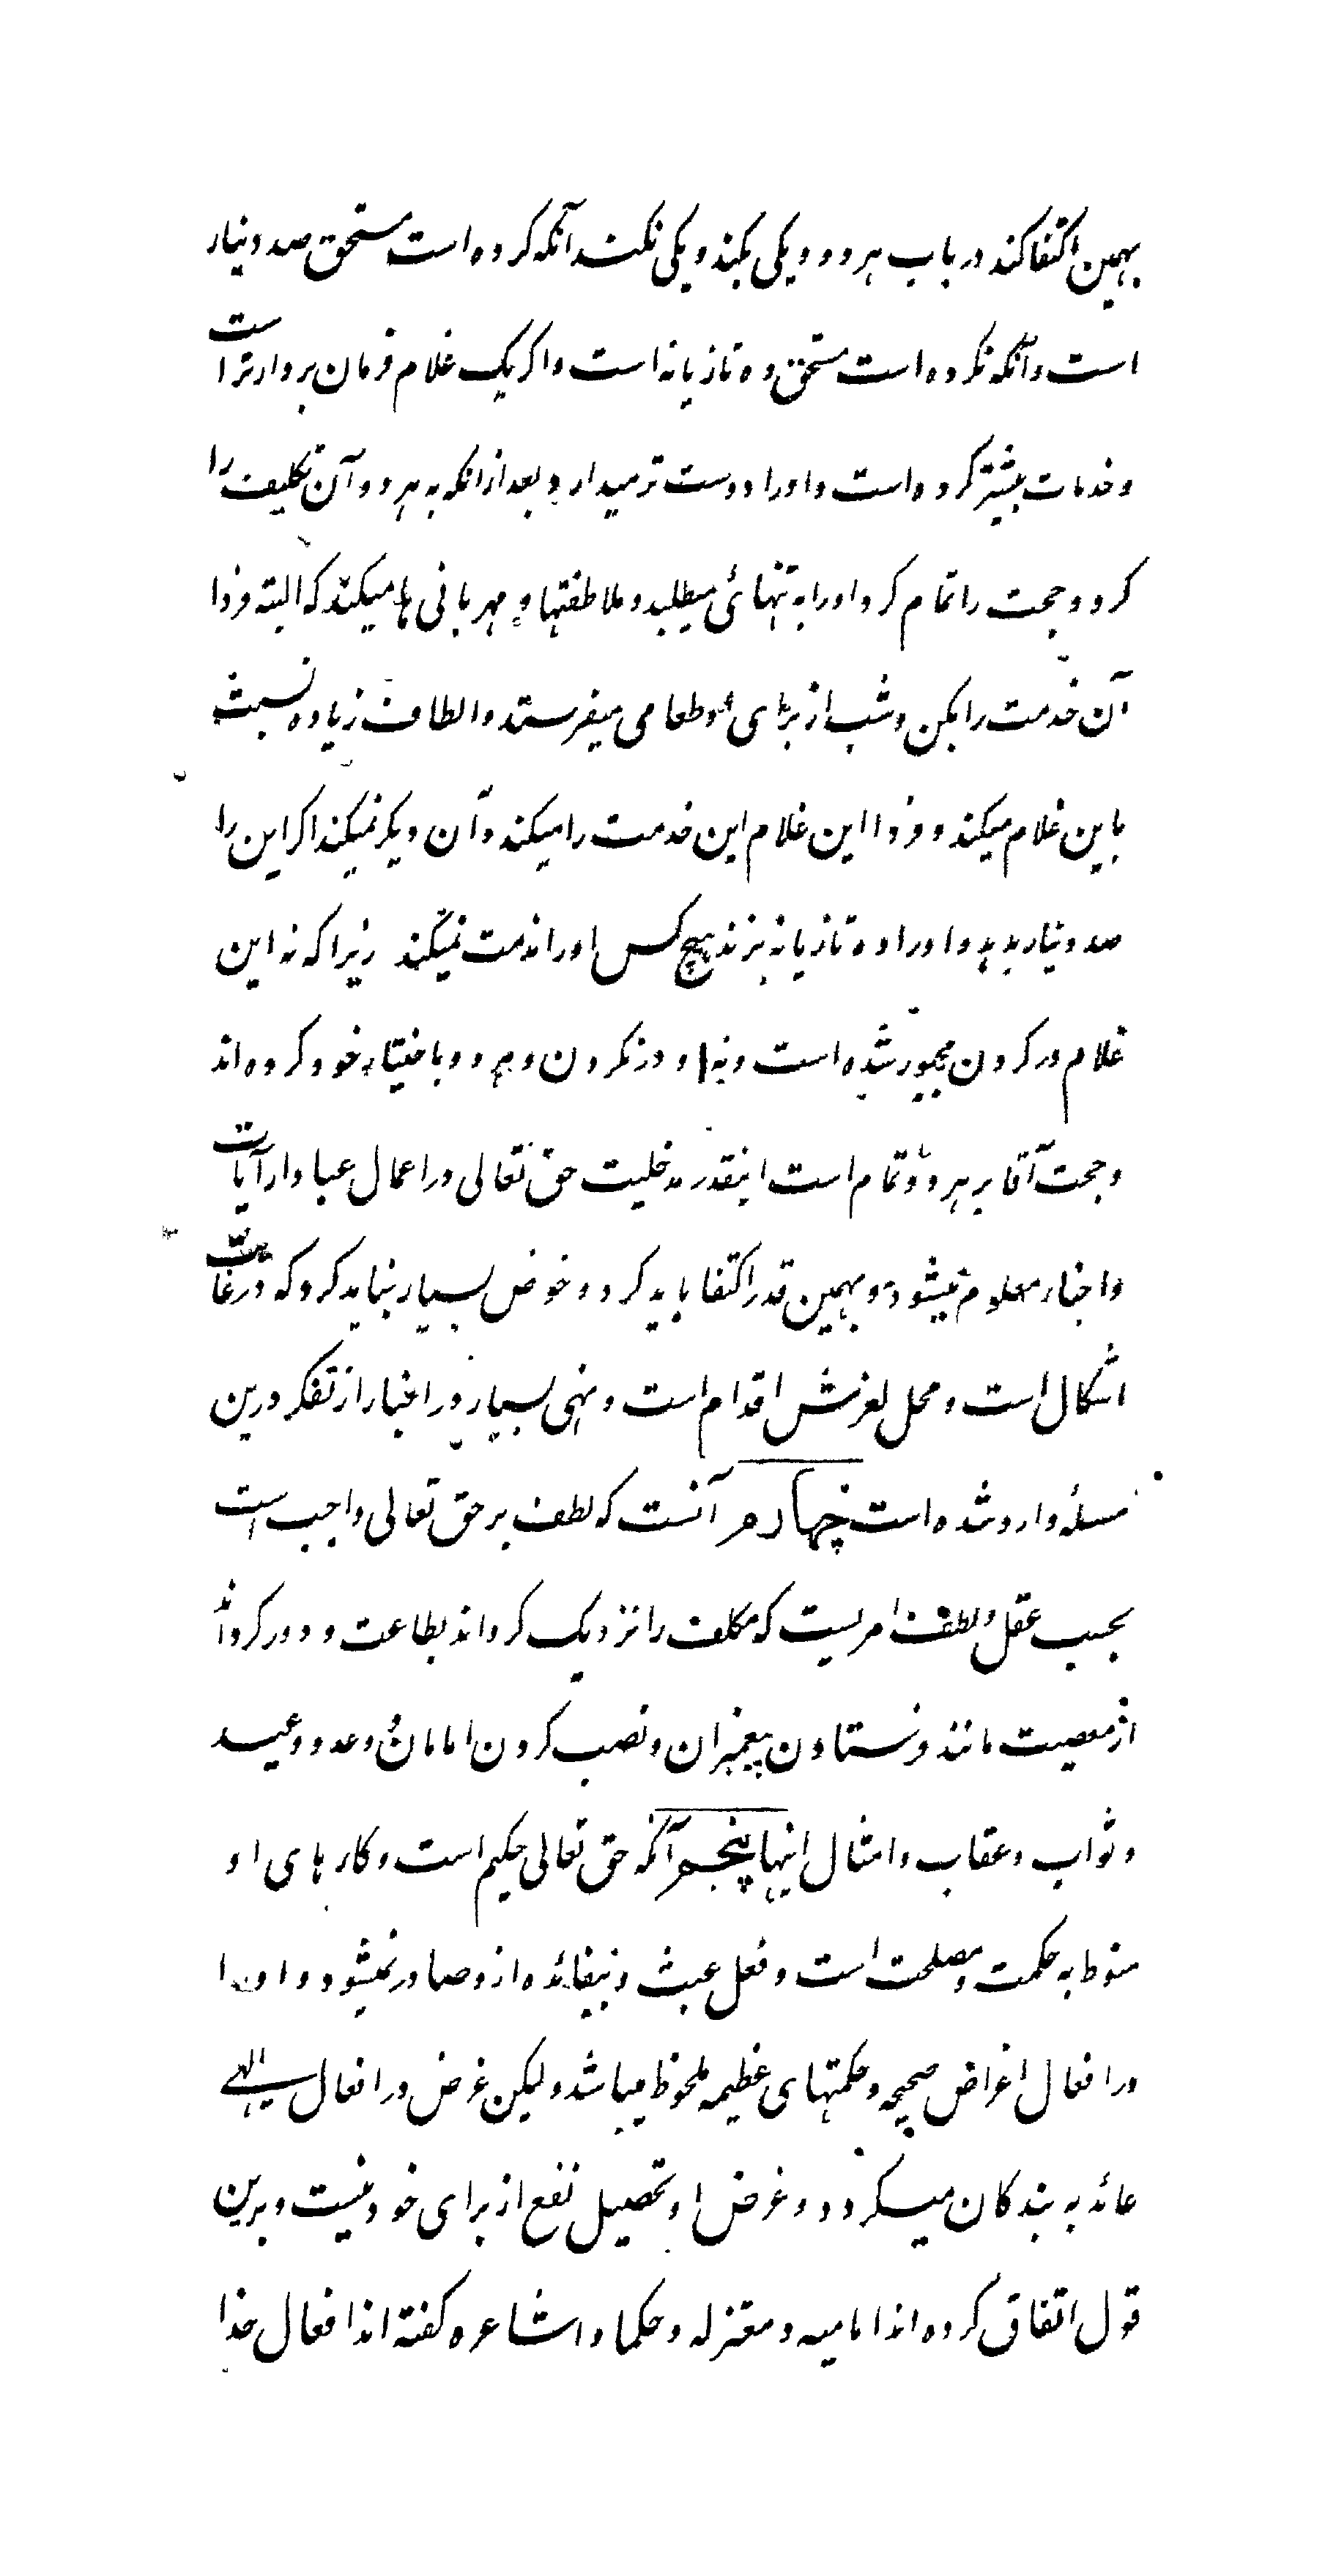 بهمین اکتفا کند در باب هر دو و یکی بکند و یکی نکند آنکه کرده است مستحق صد دینار
است و آنکه نکرده است مستحق ده تازیانه است و اکر یک غلام فرمان بردارتر است
و خدمات بیشتر کرده است و او را دوست تر میدارد و بعد از انکه به هر دو آن تکلیف را
کرد و حجت را تمام کرد او را به تنهائی میطلبد و ملاطفتها و مهربانی ها میکند که البته فردا
آن خدمت را بکن و شب از برای او طعامی میفرستد و الطاف زیاده نسبت
باین غلام میکند و فردا این غلام این خدمت را میکند و آن دیکر نمیکند اکر این را
صد دینار بدهد و او را ده تازیانه بزند هیچ کس او را مذمت نمیکند زیرا که نه این
غلام در کردن مجبور شده است و نه او در نکردن و هر دو باختیار خود کرده اند
و حجت آقا بر هر دو تمام است اینقدر مدخلیت حق تعالی در اعمال عباد از آیات
و اخبار معلوم میشود و بهمین قدر اکتفا باید کرد و خوض بسیار نباید کرد که در غایت
اشکال است و محل لغزش اقدام است و نهی بسیار در اخبار از تفکر درین
مسئله وارد شده است چهارم آنست که لطف بر حق تعالی واجب است
بحسب عقل و لطف امریست که مکلف را نزدیک کرداند بطاعت و دور کرداند
از معصیت مانند فرستادن پیغمبران و نصب کردن امامان و وعد و وعید
و ثواب و عقاب و امثال اینها پنجم آنکه حق تعالی حکیم است و کارهای او
منوط به حکمت و مصلحت است و فعل عبث و بیفائده ازو صادر نمیشود و او را
در افعال اغراض صحیحه و حکمتهای عظیمه ملحوظ میباشد و لیکن غرض در افعال الهی
عائد به بندکان میکردد و غرض او تحصیل نفع از برای خود نیست و برین
قول اتفاق کرده اند امامیه و معتزله و حکما و اشاعره کفته اند افعال خدا